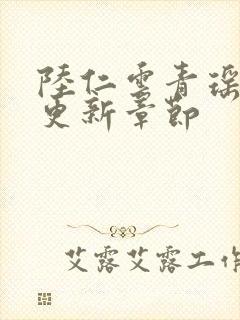 陸仁雲青瑶
更新章節
艾露艾露工作